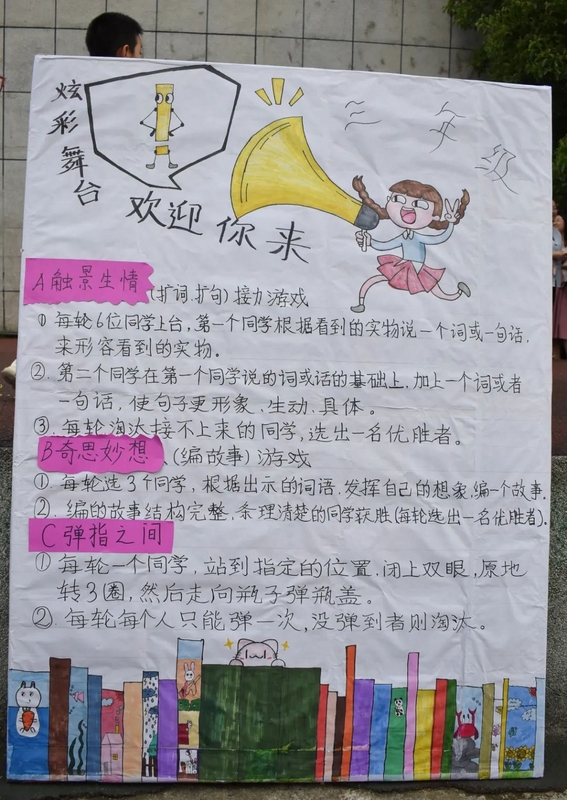 炫彩舞台
欢迎你来
三年级
A触景生情 (扩词.扩句) 接力游戏
① 每轮6位同学上台，第一个同学根据看到的实物说一个词或一句话，
来形容看到的实物。
②. 第二个同学在第一个同学说的词或话的基础上，加上一个词或者
一句话，使句子更形象、生动、具体。
③. 每轮淘汰接不上来的同学，选出一名优胜者。
B奇思妙想 (编故事) 游戏
① 每轮选3个同学，根据出示的词语，发挥自己的想象，编一个故事.
②. 编的故事结构完整，条理清楚的同学获胜(每轮选出一名优胜者).
C弹指之间
① 每轮一个同学，站到指定的位置，闭上双眼，原地
转3圈，然后走向瓶子弹瓶盖。
②. 每轮每个人只能弹一次，没弹到者则淘汰。